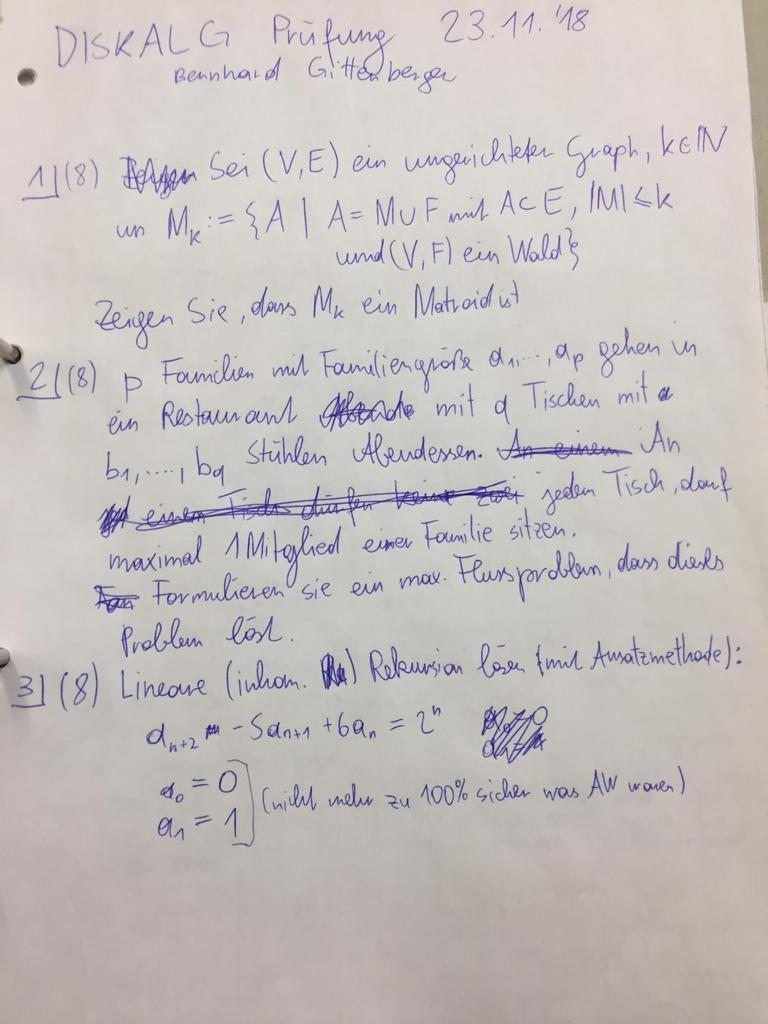 DISKALG Prüfung 23.11.'18
Bernhard Gittenberger
1](8) Sei (V,E) ein ungerichteter Graph, k∈ℕ
un M_k := {A | A = M∪F mit A⊂E, |M|≤k
und (V,F) ein Wald}
Zeigen Sie, dass M_k ein Matroid ist
2](8) p Familien mit Familiengröße a_1,...,a_p gehen in
ein Restaurant mit q Tischen mit
b_1,....,b_q Stühlen Abendessen. An
jeden Tisch, darf
maximal 1 Mitglied einer Familie sitzen.
Formulieren sie ein max. Flussproblem, dass dieses
Problem löst.
3](8) Lineare (inhom.) Rekursion lösen (mit Ansatzmethode):
a_{n+2} - 5a_{n+1} + 6a_n = 2^n
a_0 = 0
a_1 = 1 (nicht mehr zu 100% sicher was AW waren)